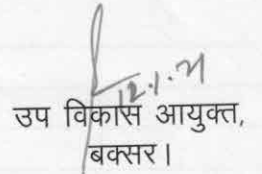 12.1.21
उप विकास आयुक्त,
बक्सर।